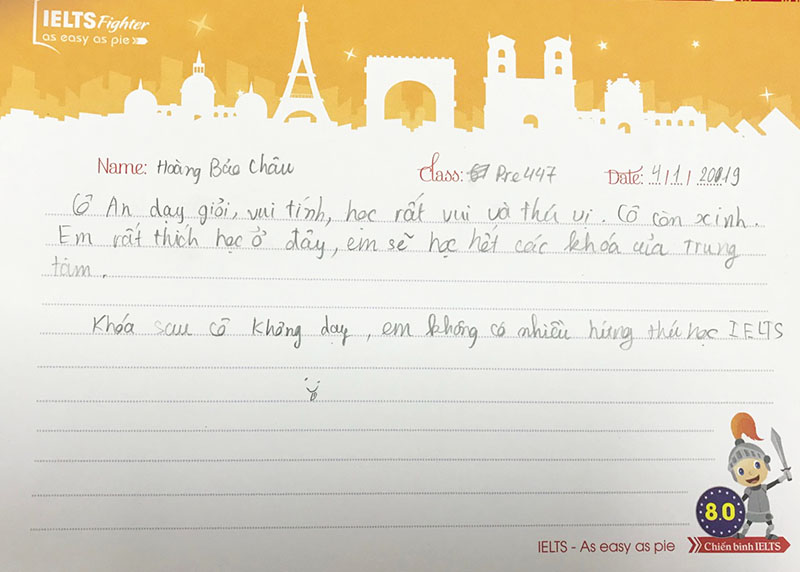 IELTS Fighter
as easy as pie
Name: Hoàng Bảo Châu Class: Pre447 Date: 4/1/2019
Cô An dạy giỏi, vui tính, học rất vui và thú vị. Cô còn xinh.
Em rất thích học ở đây, em sẽ học hết các khóa của trung
tâm.
Khóa sau cô không dạy, em không có nhiều hứng thú học IELTS
8.0
IELTS - As easy as pie Chiến binh IELTS